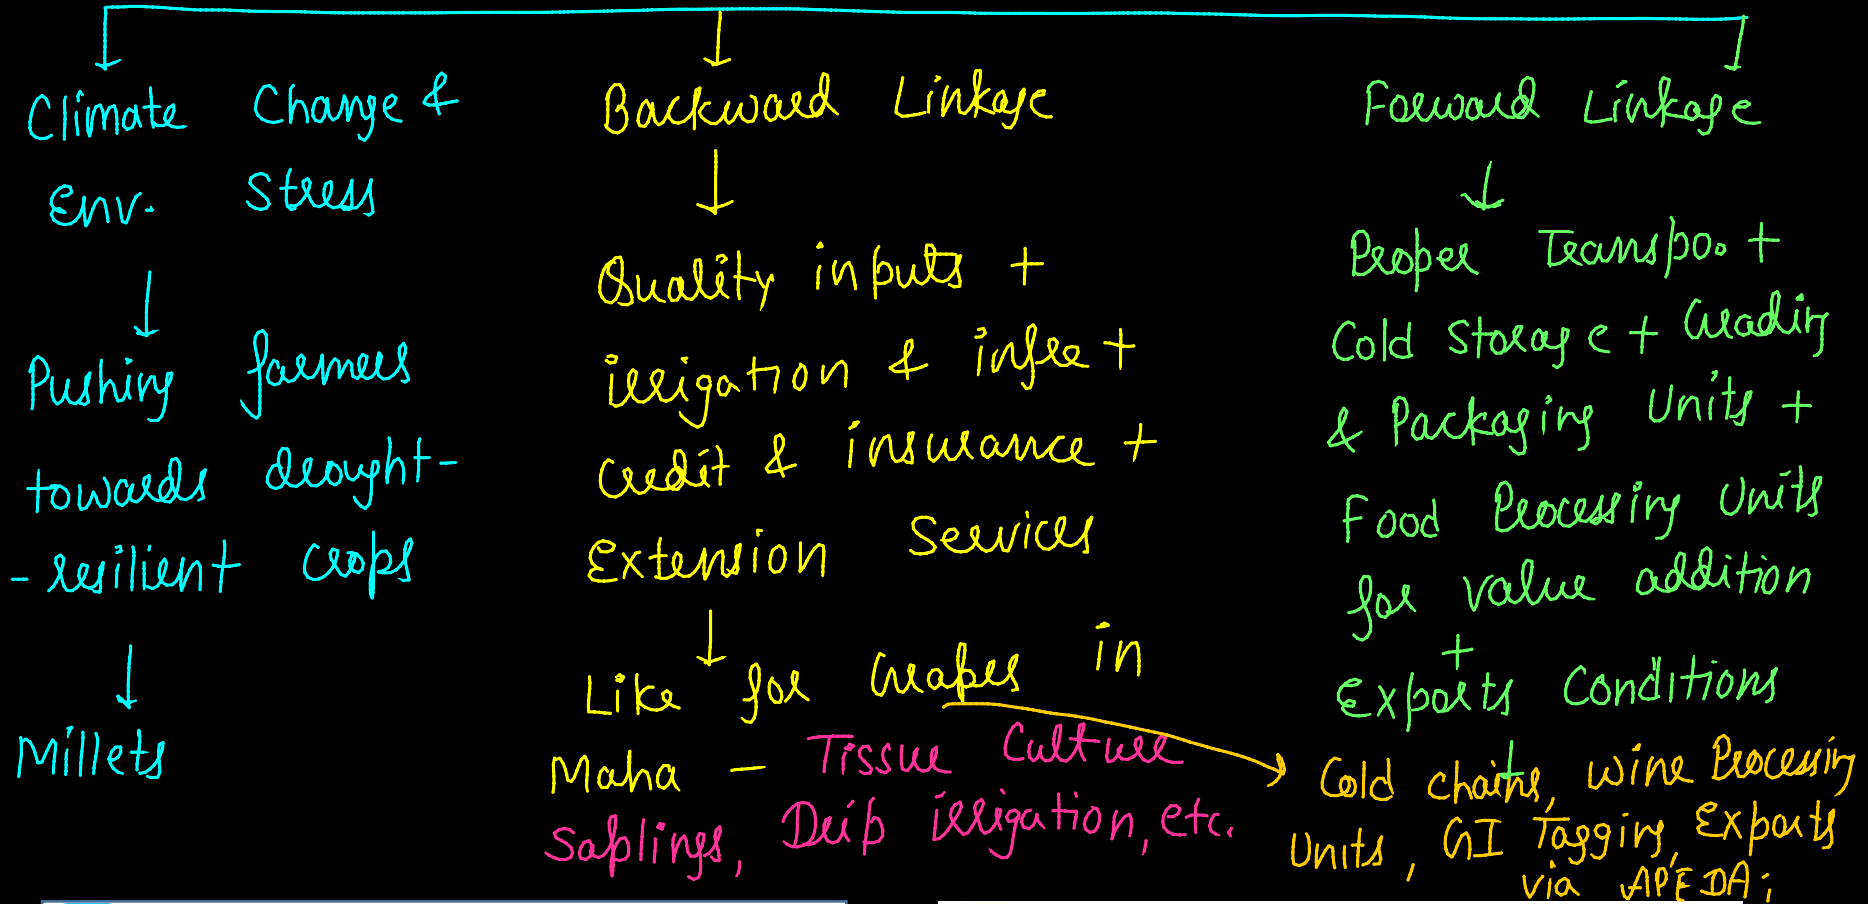 Climate Change &
Env. Stress
Pushing farmers
towards drought-
-resilient crops
Millets
Backward Linkage
Quality inputs +
irrigation & infra +
Credit & insurance +
Extension Services
Like for Grapes in
Maha - Tissue Culture
Saplings, Drip irrigation, etc.
Forward Linkage
Proper Transpo. +
Cold Storage + Grading
& Packaging Units +
Food Processing Units
for value addition
+
Exports Conditions
Cold chains, Wine Processing
Units, GI Tagging, Exports
via APEDA;